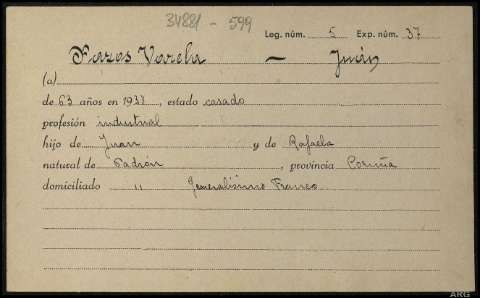 34881 - 599
Leg. núm. 5 Exp. núm. 37
Pazos Varela — Juán
(a)
de 63 años en 1937, estado casado
profesión industrial
hijo de Juan y de Rafaela
natural de Padrón, provincia Coruña
domiciliado " Generalísimo Franco
ARG